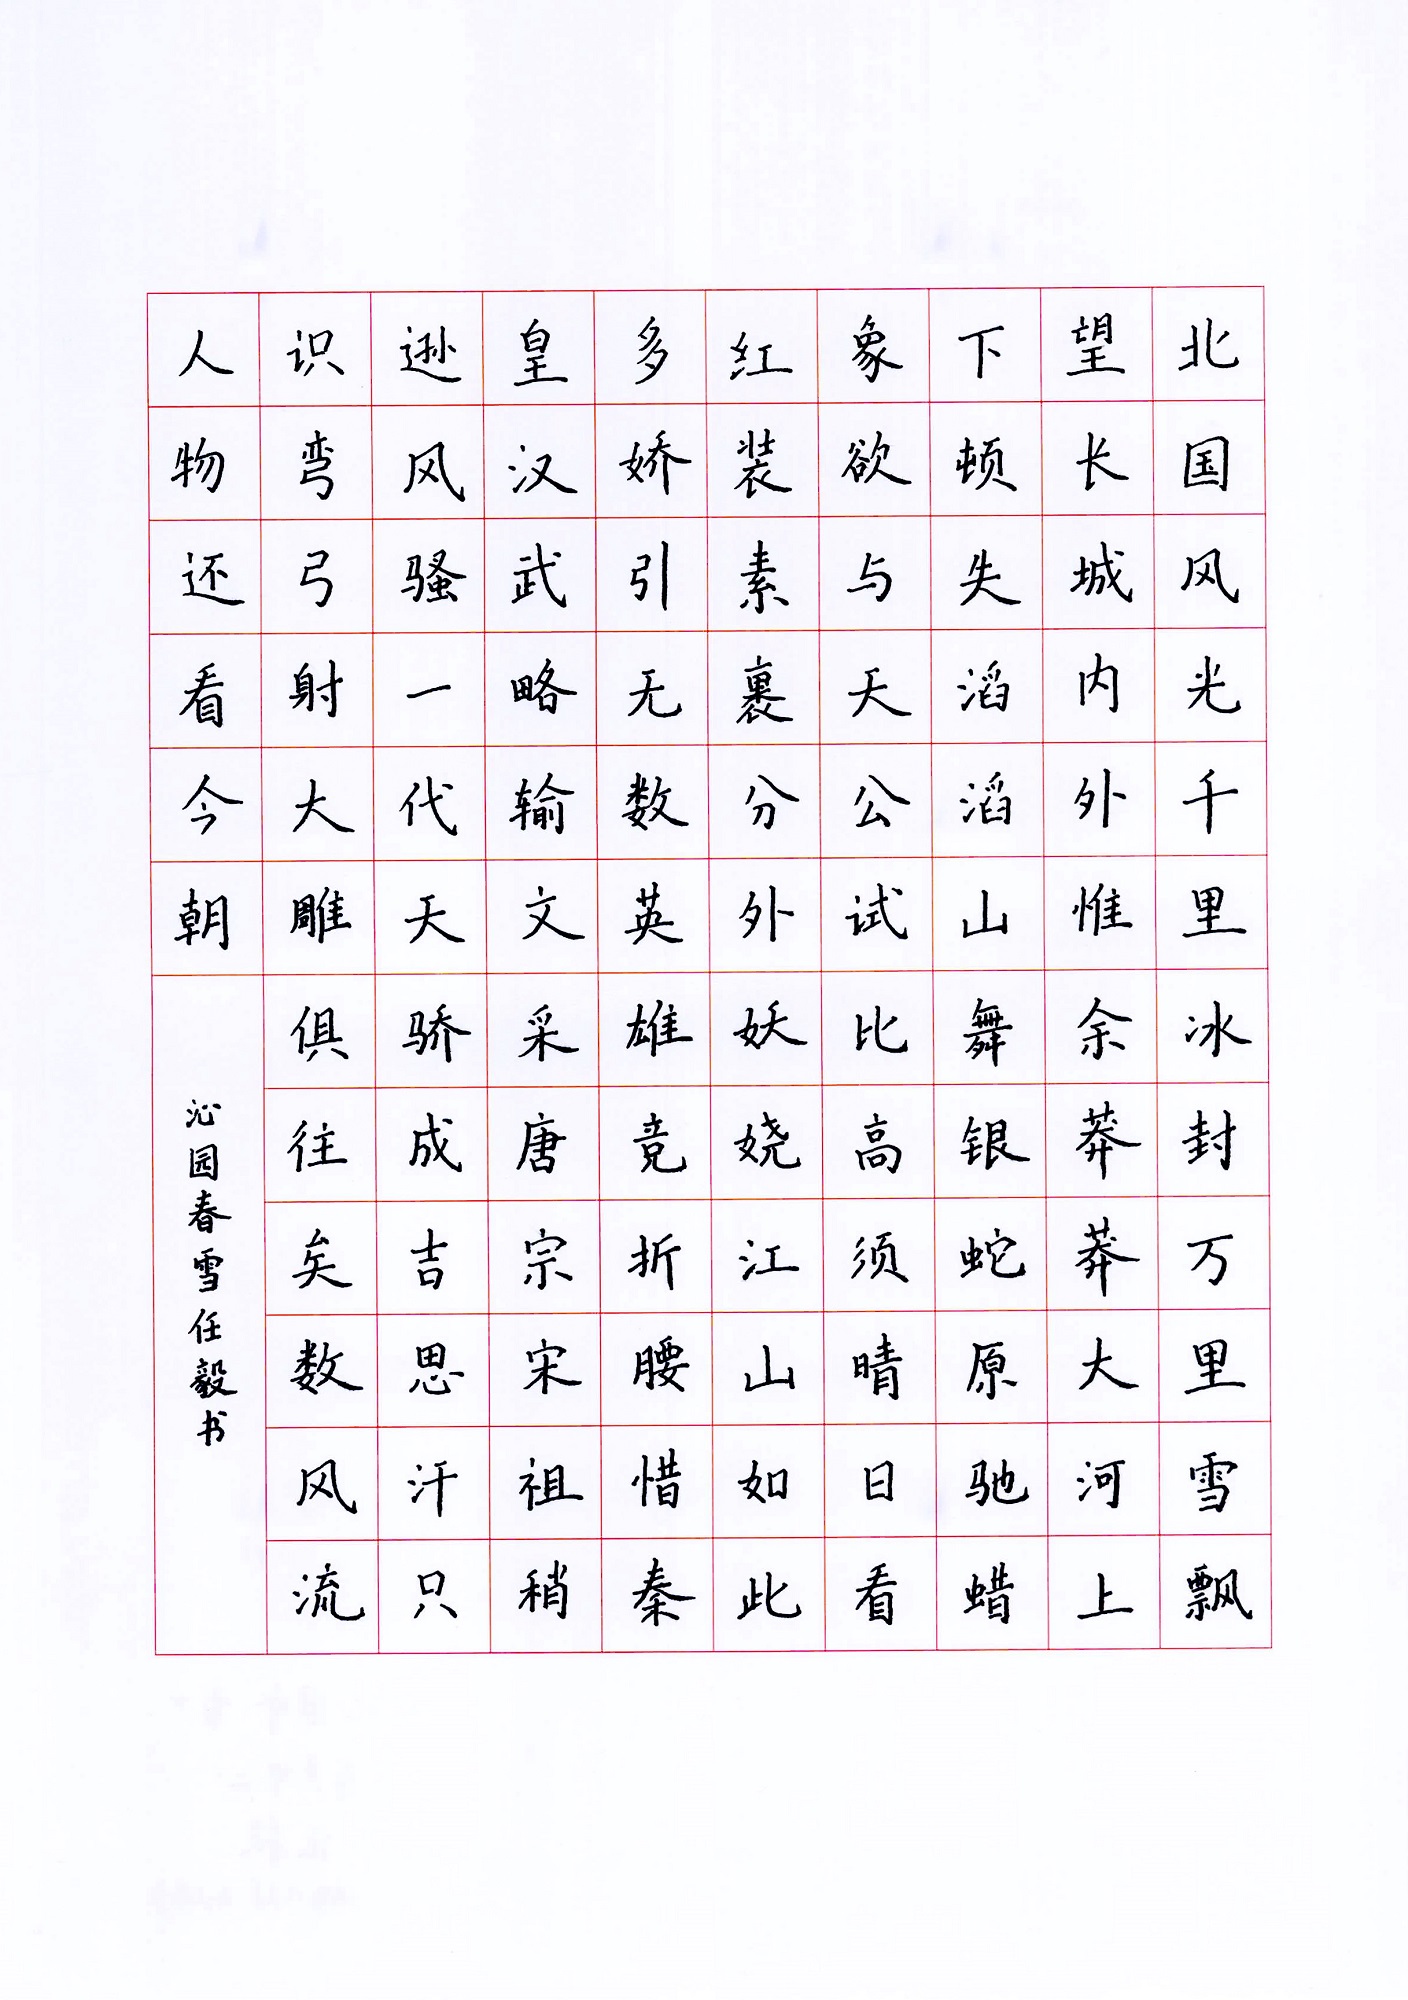 北国风光千里冰封万里雪飘
望长城内外惟余莽莽大河上
下顿失滔滔山舞银蛇原驰蜡
象欲与天公试比高须晴日看
红装素裹分外妖娆江山如此
多娇引无数英雄竞折腰惜秦
皇汉武略输文采唐宗宋祖稍
逊风骚一代天骄成吉思汗只
识弯弓射大雕俱往矣数风流
人物还看今朝
沁园春雪任毅书